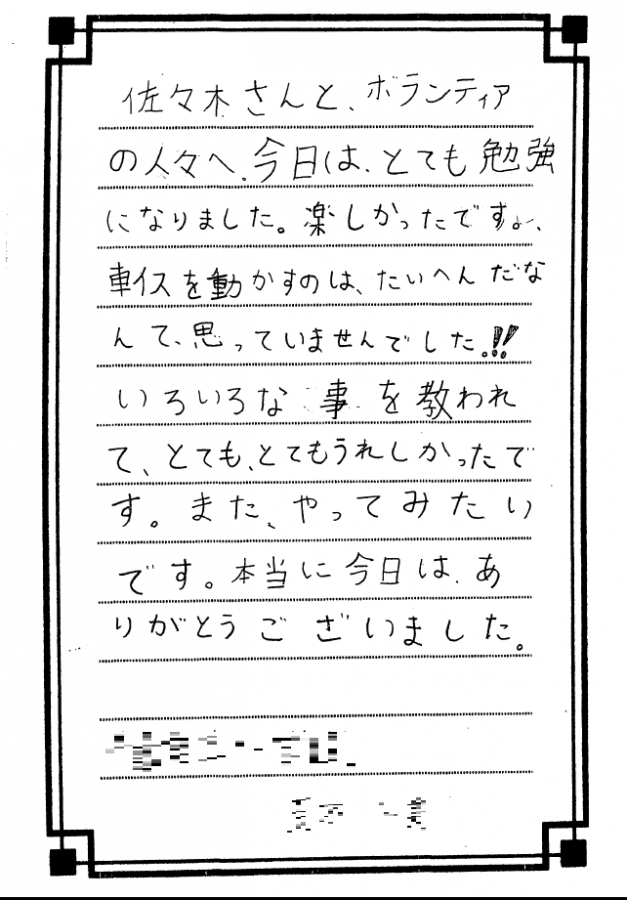 佐々木さんと、ボランティア
の人々へ、今日は、とても勉強
になりました。楽しかったです。
車イスを動かすのは、たいへんだな
んて、思っていませんでした!!
いろいろな事を教われ
て、とても、とてもうれしかったで
す。また、やってみたい
です。本当に今日は、あ
りがとうございました。